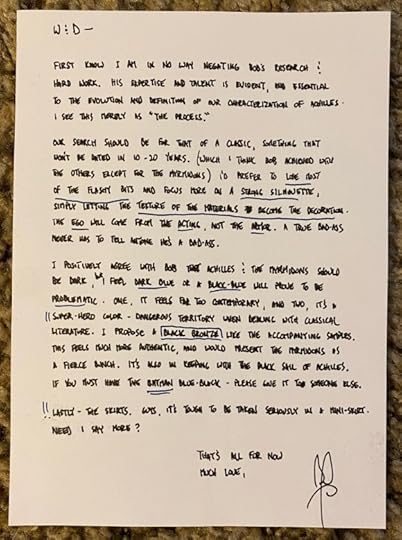 W & D —
FIRST KNOW I AM IN NO WAY NEGATING BOB'S RESEARCH &
HARD WORK. HIS EXPERTISE AND TALENT IS EVIDENT, AND ESSENTIAL
TO THE EVOLUTION AND DEFINITION OF OUR CHARACTERIZATION OF ACHILLES.
I SEE THIS MERELY AS "THE PROCESS."
OUR SEARCH SHOULD BE FOR THAT OF A CLASSIC, SOMETHING THAT
WON'T BE DATED IN 10-20 YEARS. (WHICH I THINK BOB ACHIEVED WITH
THE OTHERS EXCEPT FOR THE MYRMIDONS) I'D PREFER TO LOSE MOST
OF THE FLASHY BITS AND FOCUS MORE ON A STRONG SILHOUETTE,
SIMPLY LETTING THE TEXTURE OF THE MATERIALS BECOME THE DECORATION.
THE EGO WILL COME FROM THE ACTING, NOT THE ARMOR. A TRUE BAD-ASS
NEVER HAS TO TELL ANYONE HE'S A BAD-ASS.
I POSITIVELY AGREE WITH BOB THAT ACHILLES & THE MYRMIDONS SHOULD
BE DARK, BUT I FEEL DARK BLUE OR A BLACK-BLUE WILL PROVE TO BE
PROBLEMATIC. ONE, IT FEELS FAR TOO CONTEMPORARY, AND TWO, IT'S A
!! SUPER-HERO COLOR - DANGEROUS TERRITORY WHEN DEALING WITH CLASSICAL
LITERATURE. I PROPOSE A BLACK BRONZE LIKE THE ACCOMPANYING SAMPLES.
THIS FEELS MUCH MORE AUTHENTIC, AND WOULD PRESENT THE MYRMIDONS AS
A FIERCE BUNCH. IT'S ALSO IN KEEPING WITH THE BLACK SAIL OF ACHILLES.
IF YOU MUST HAVE THE BATMAN BLUE-BLACK - PLEASE GIVE IT TO SOMEONE ELSE.
!! LASTLY - THE SKIRTS. GUYS, IT'S TOUGH TO BE TAKEN SERIOUSLY IN A MINI-SKIRT.
NEED I SAY MORE?
THAT'S ALL FOR NOW
MUCH LOVE,